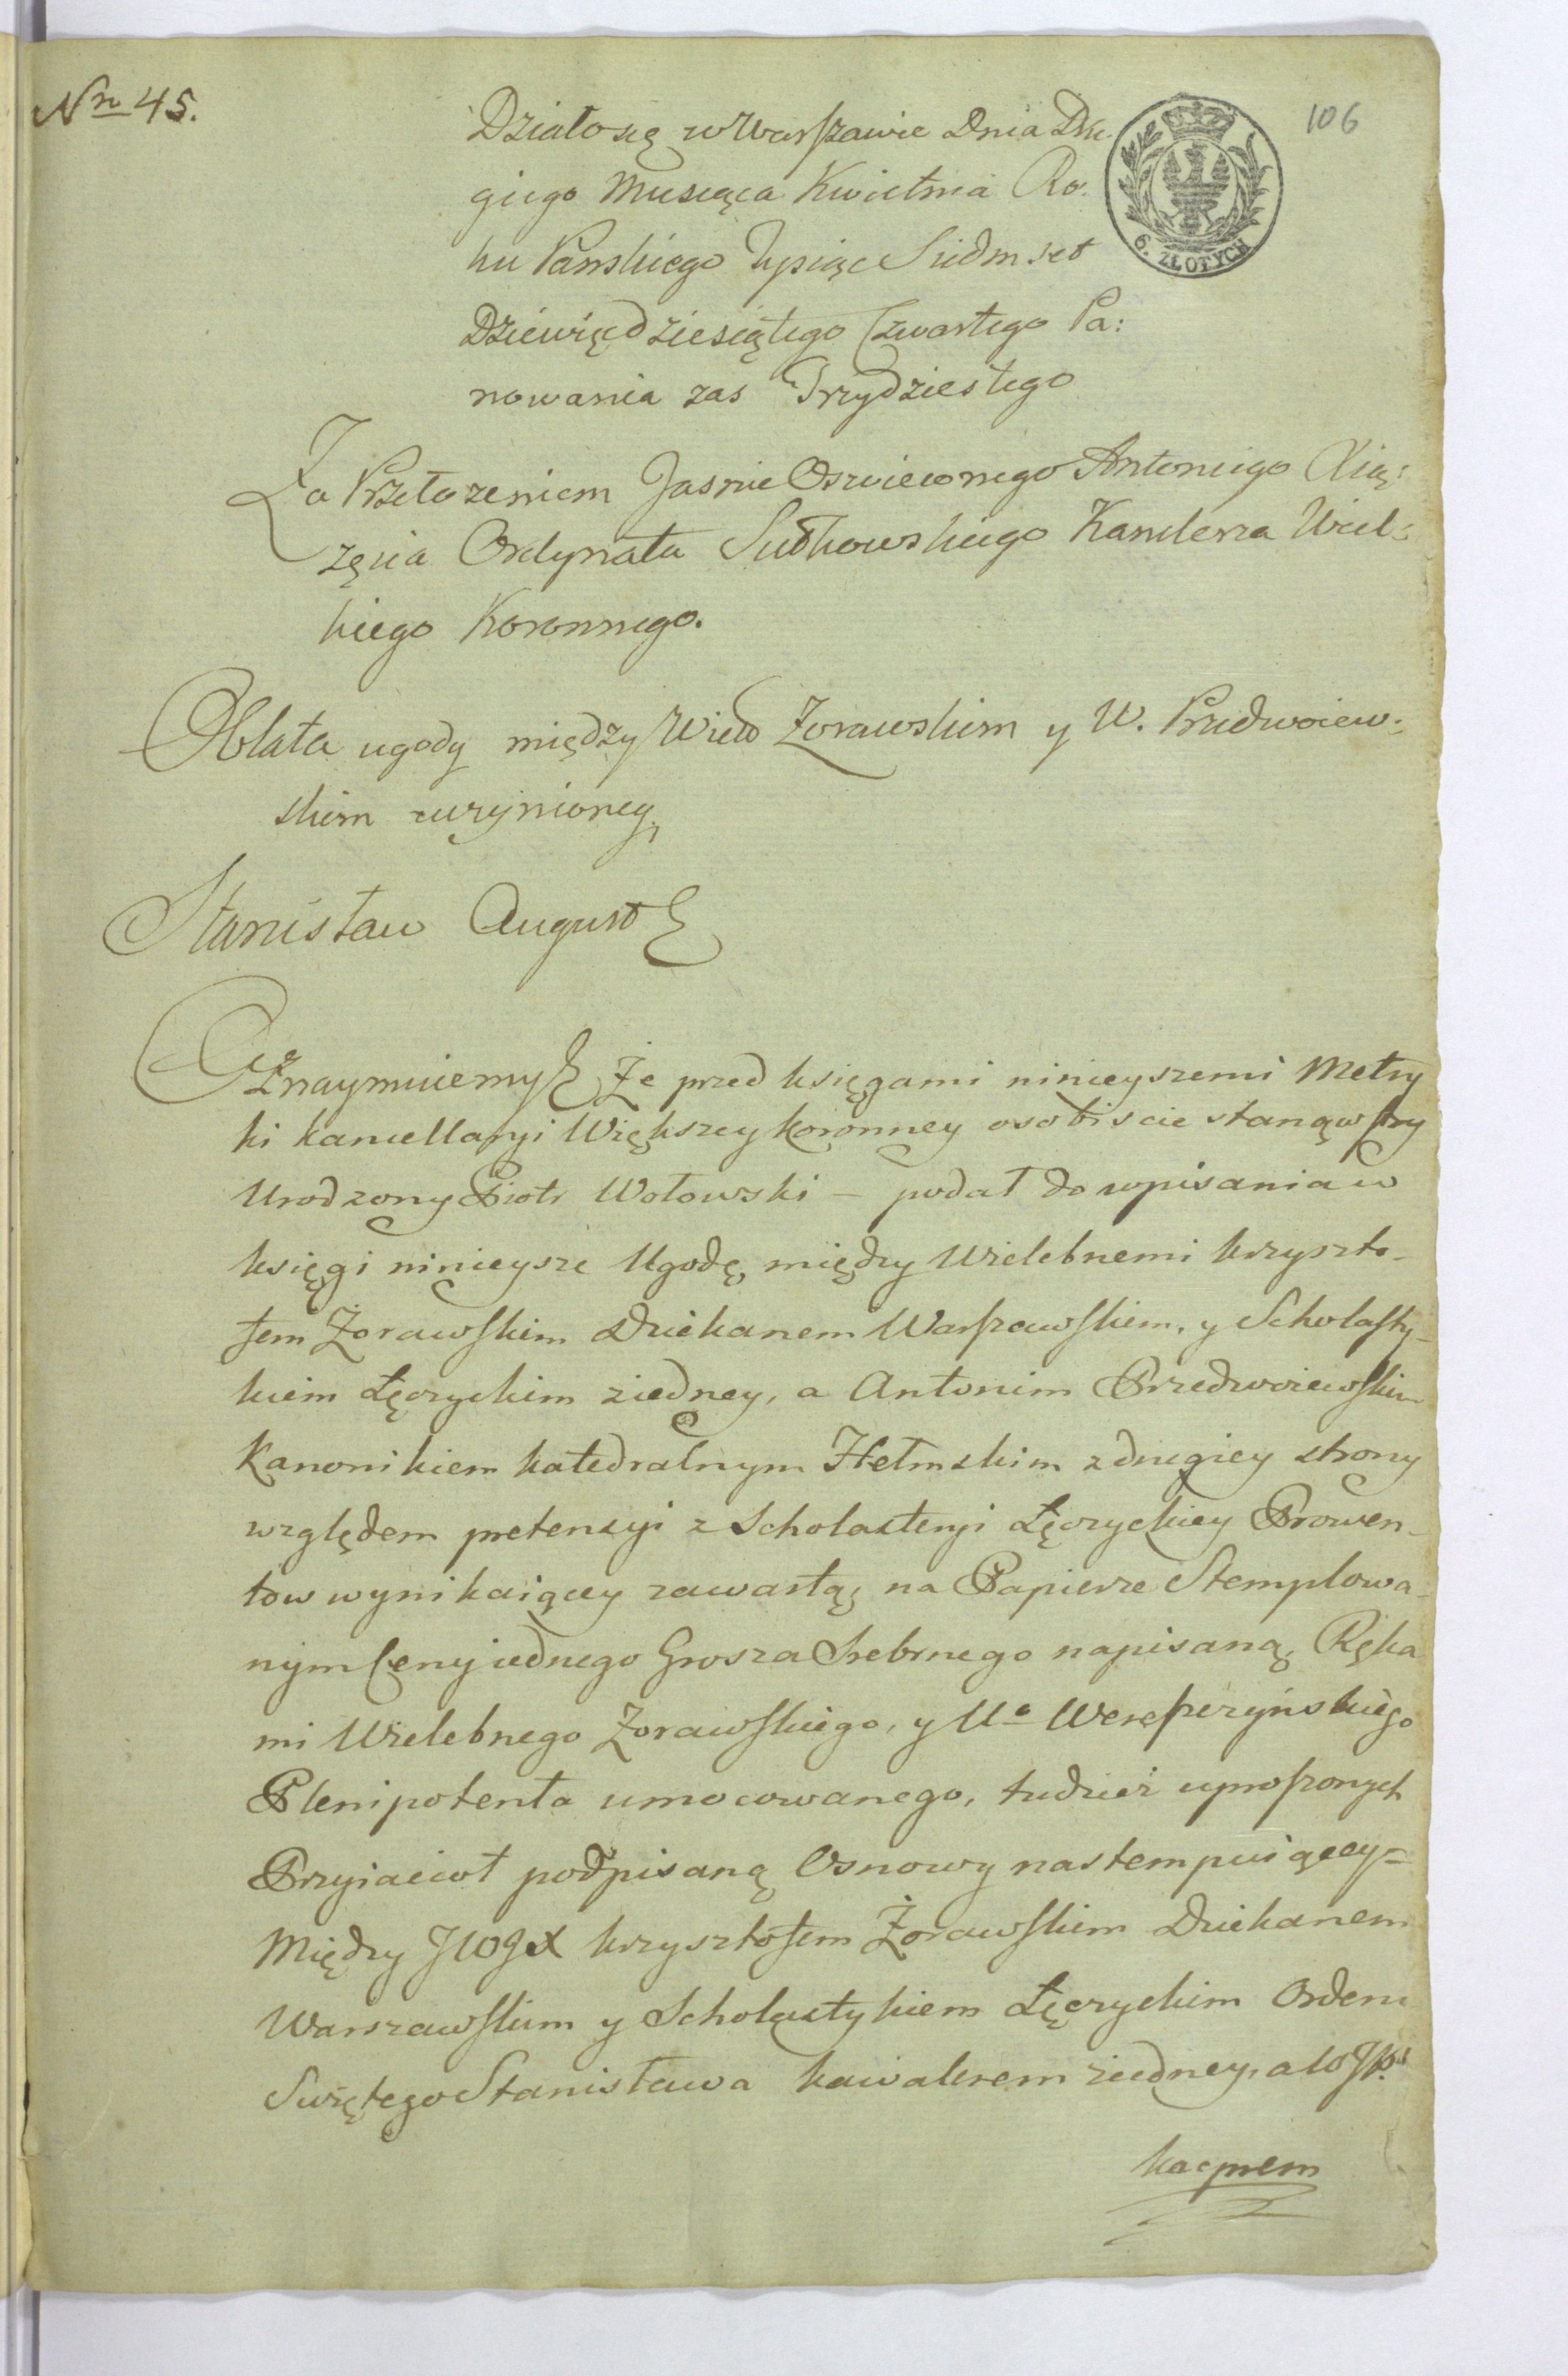 Nro 45.
106
Działo się w Warszawie Dnia Dru-
giego Miesiąca Kwietnia Ro.
ku Panskiego Tysiąc Siedmset
Dziewięcdziesiątego Czwartego Pa:
nowania zas Trzydziestego
6. ZŁOTYCH
Za Przełozeniem Jasnie Oswieconego Antoniego Xią:
zęcia Ordynata Sułkowskiego Kanclerza Wiel:
kiego Koronnego.
Oblata ugody między Wiel Zorawskim y W. Przedwoiew:
skim uczynioney
Stanisław August
Oznaymuiemy Że przed księgami ninieyszemi Metry
ki kancellaryi Większey koronney osobiscie stanąwszy
Urodzony Piotr Wołowski – podał do wpisania w
księgi ninieysze Ugodę, między Wielebnemi krzyszto-
fem Żorawskim Dziekanem Warszawskiem, y Scholasty-
kiem Łęczyckim ziedney, a Antonim Przedwoiewskim
Kanonikiem katedralnym Hełmskim z drugiey strony
względem pretensyi z Scholasteryi Łęczyckiey Prowen-
tow wynikaiącey zawartą, na Papierze Stemplowa-
nym Ceny iednego Grosza Srebrnego napisaną, Ręka
mi Wielebnego Zorawskiego, y Uo Wereszczyńskiego
Plenipotenta umocowanego, tudzież uproszonych
Przyiacioł podpisaną Osnowy nastempuiącey=
Między JWJX krzysztofem Żorawskim Dziekanem
Warszawskim y Scholastykiem Łęczyckim Orderu
Swiętego Stanisława kawalerem ziedney, a WJP.
kacprem